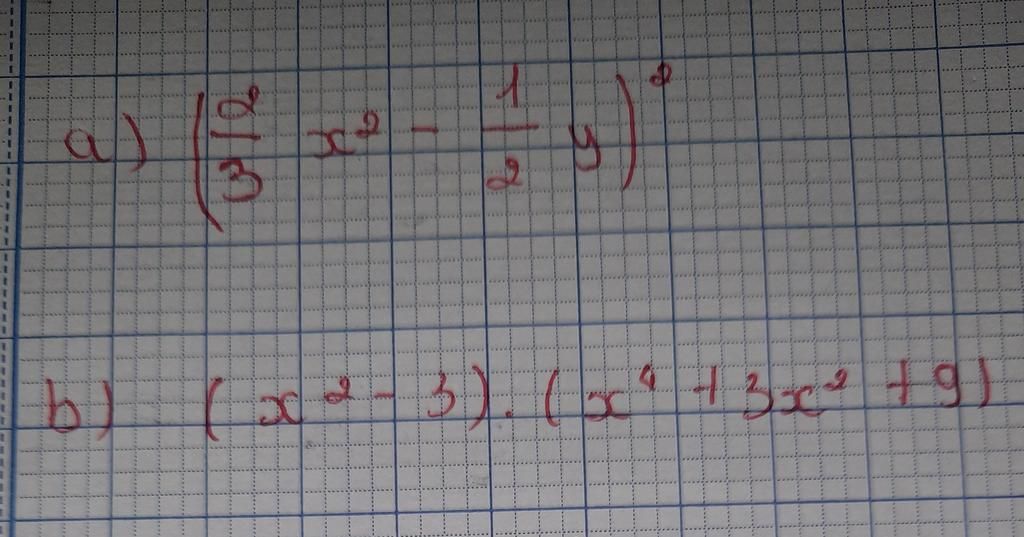 a) (2/3 x² - 1/2 y)²
b) (x² - 3).(x⁴ + 3x² + 9)